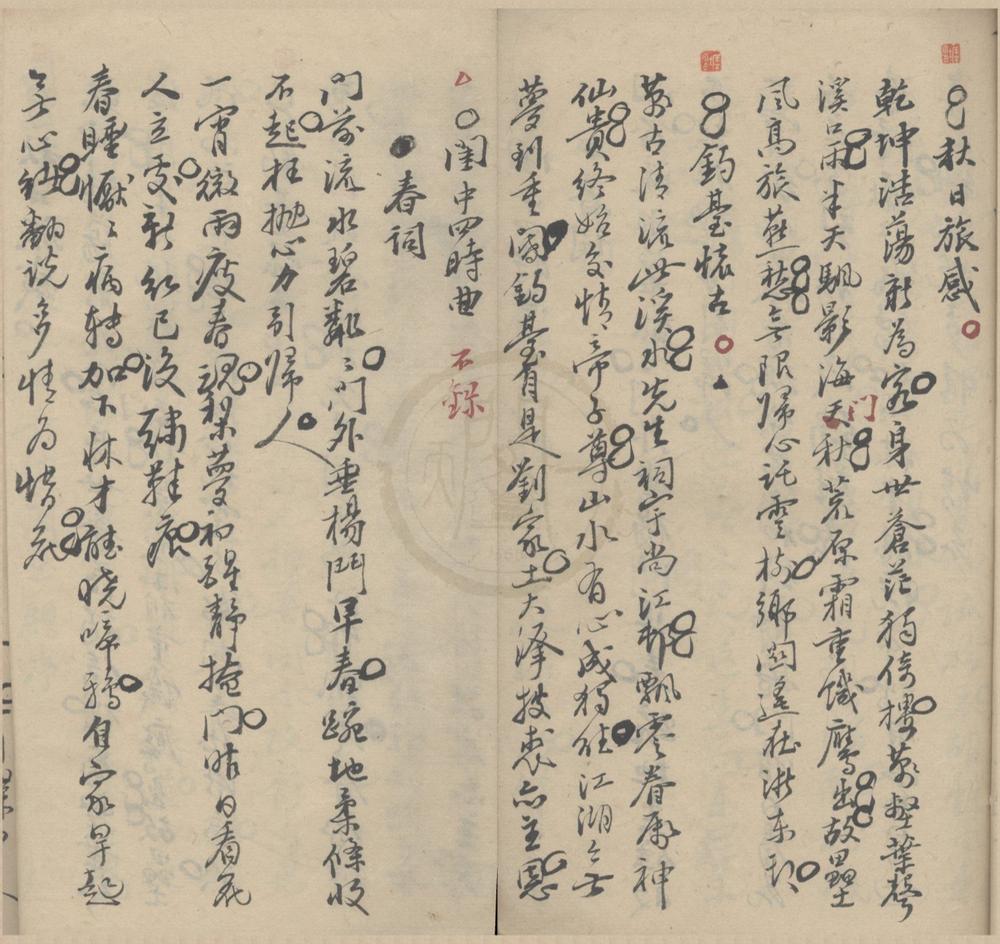 秋日旅感
乾坤浩蕩新為客身世蒼茫獨倚樓萬壑葉聲
溪口雨半天颿影海天门秋荒原霜重饑鷹出故壘
風高旅燕愁無限歸心託雲樹鄉關遙在浙東頭
釣臺懷古
萬古清流此溪水先生祠宇尚江邨飄零眷屬神
仙貴終始交情帝子尊山水有心成獨往江湖無
夢到重閽釣臺自是劉家土大澤披裘亦主恩
閨中四時曲 不錄
春詞
門前流水碧粼〻門外垂楊鬥早春踠地柔條收
不起枉拋心力引歸人
一宵微雨瘦春魂梨夢初醒靜掩門昨日看花
人立處新紅已沒繡鞋痕
春睡懨〻病轉加下牀才聽曉啼鴉自家早起
無心緒翻說多情為惜花